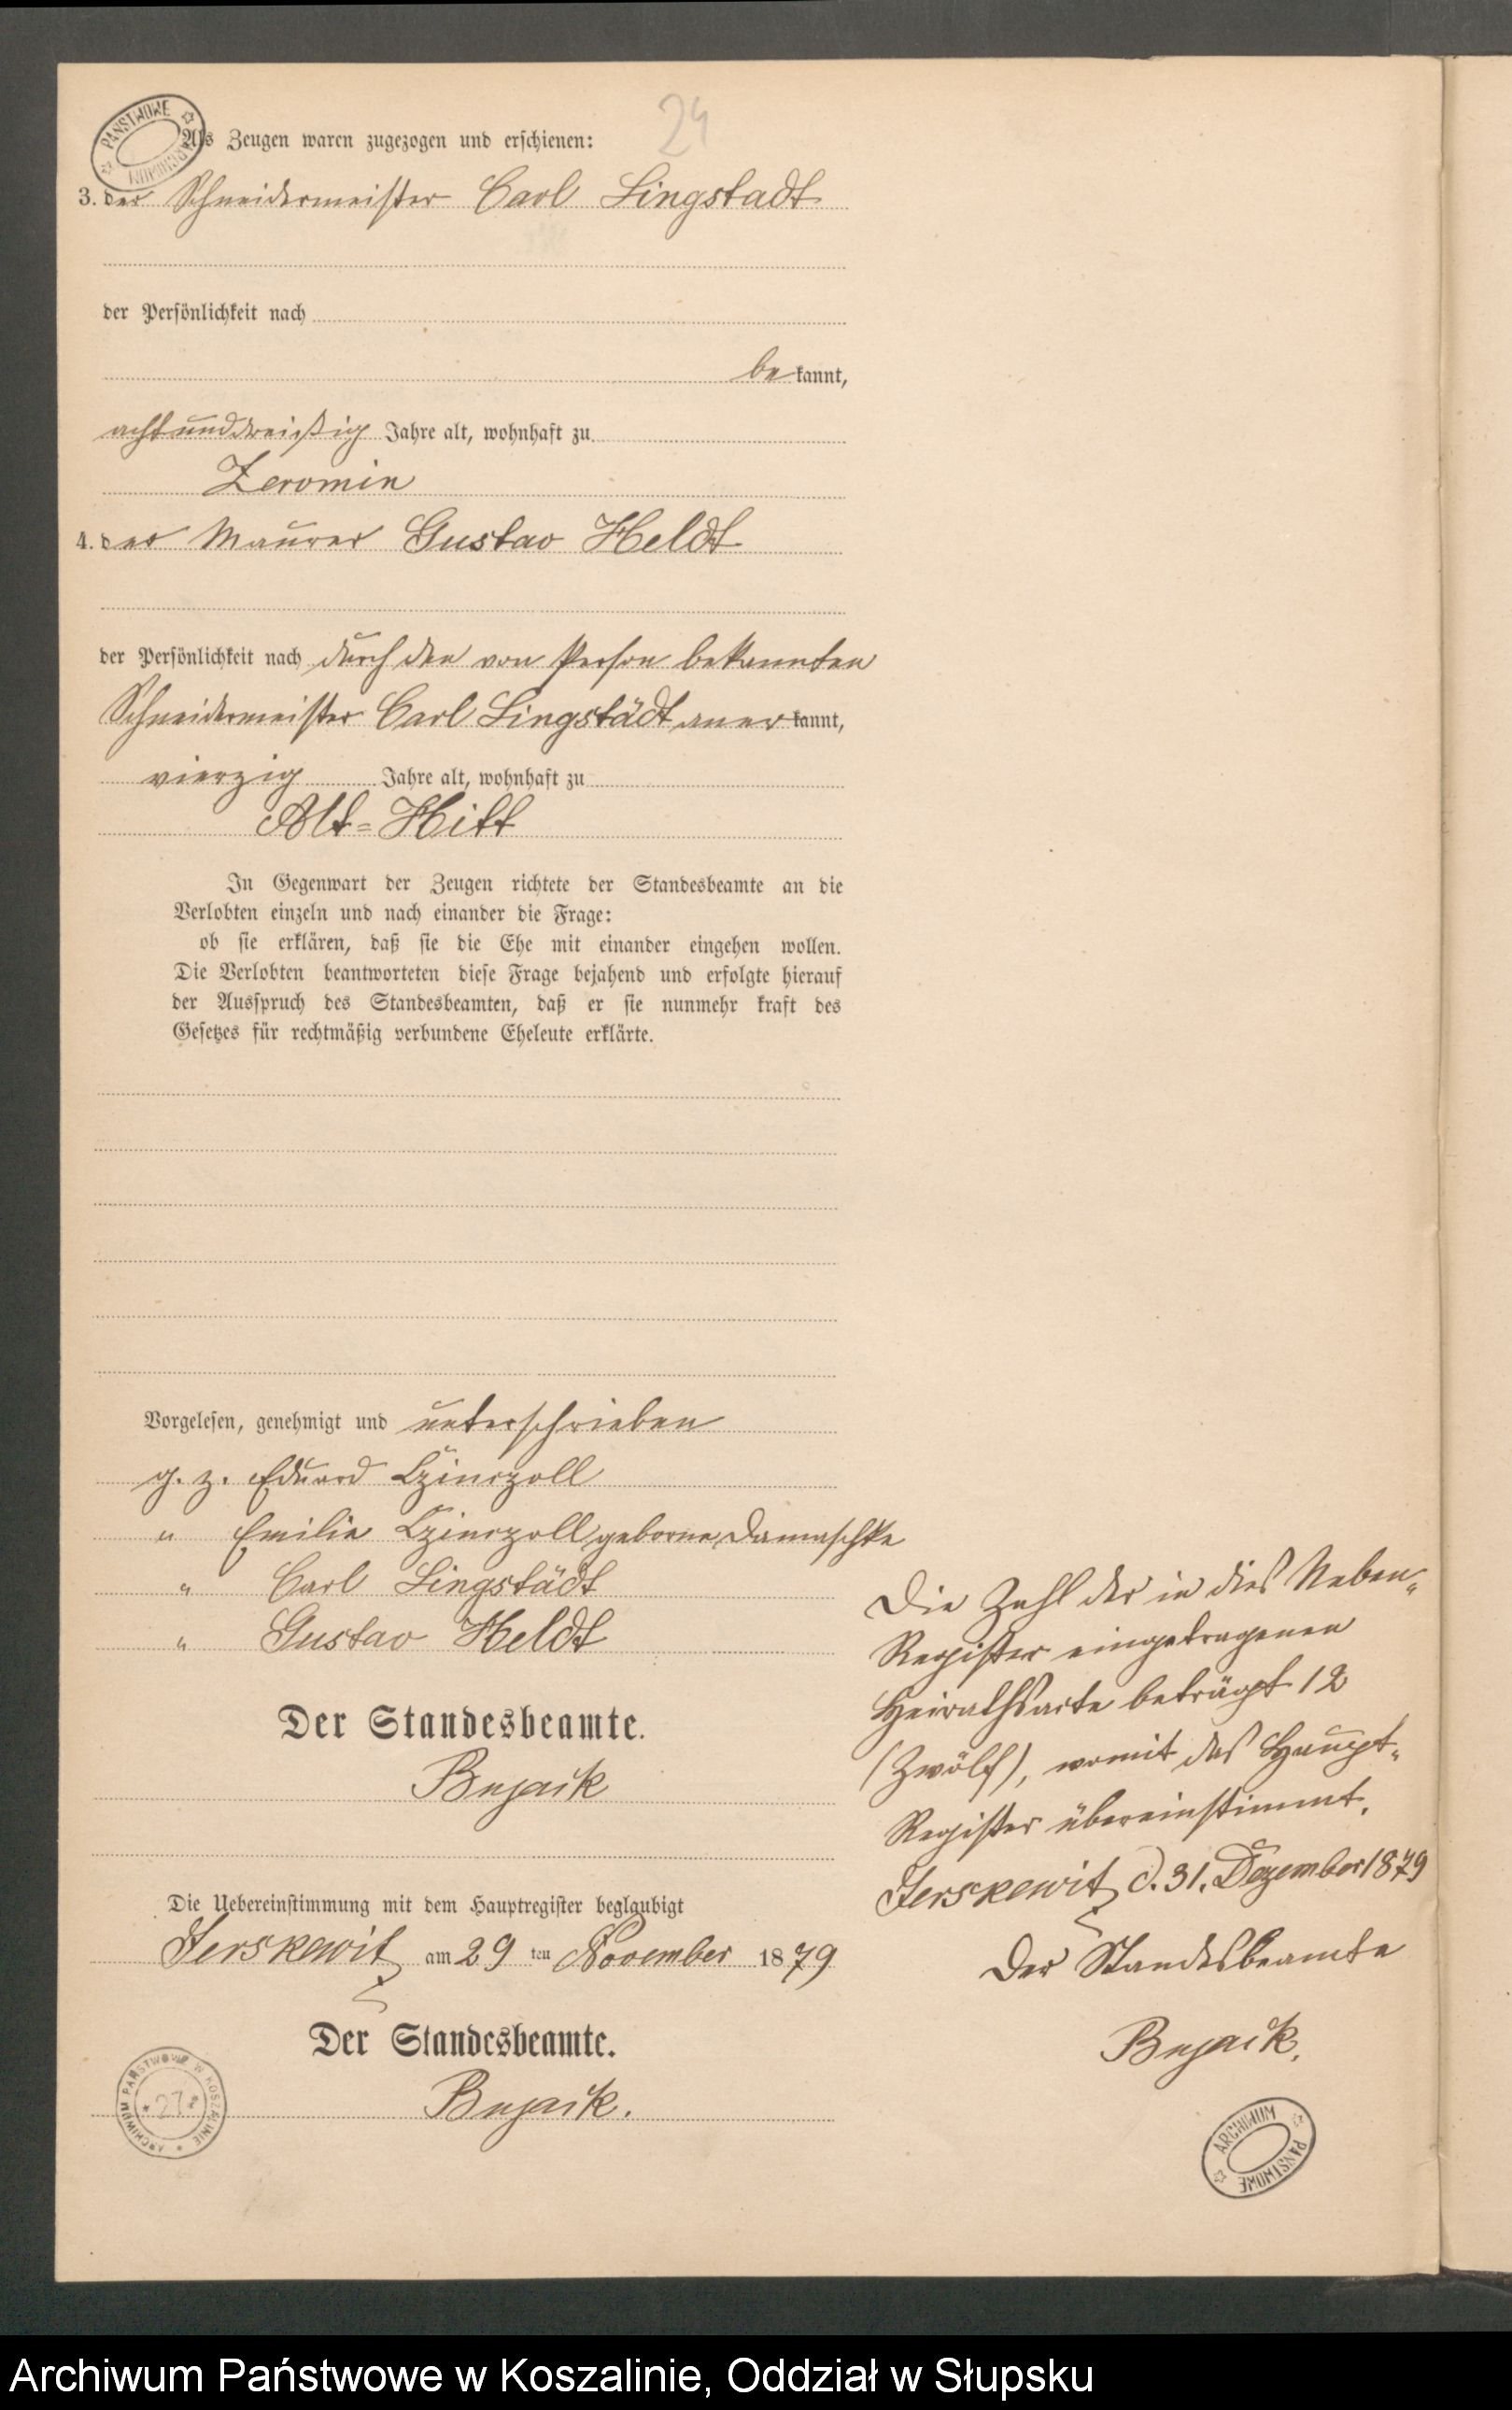 24
PAŃSTWOWE ARCHIWUM
Als Zeugen waren zugezogen und erschienen:
3. der Schneidermeister Carl Lingstadt
der Persönlichkeit nach
be kannt,
achtunddreißig Jahre alt, wohnhaft zu
Zeromin
4. der Maurer Gustav Heldt
der Persönlichkeit nach durch den von Person bekannten
Schneidermeister Carl Lingstädt aner kannt,
vierzig Jahre alt, wohnhaft zu
Alt-Hütt
In Gegenwart der Zeugen richtete der Standesbeamte an die
Verlobten einzeln und nach einander die Frage:
ob sie erklären, daß sie die Ehe mit einander eingehen wollen.
Die Verlobten beantworteten diese Frage bejahend und erfolgte hierauf
der Ausspruch des Standesbeamten, daß er sie nunmehr kraft des
Gesetzes für rechtmäßig verbundene Eheleute erklärte.
Vorgelesen, genehmigt und unterschrieben
g. z. Eduard
" Emilie geborne Damaschke
" Carl Lingstädt
" Gustav Heldt
Der Standesbeamte.
Bujack
Die Uebereinstimmung mit dem Hauptregister beglaubigt
Jerskewitz am 29 ten November 1879
Der Standesbeamte.
Bujack.
ARCHIWUM PAŃSTWOWE W KOSZALINIE * 27 *
Die Zahl der in dies Neben-
Register eingetragenen
Heirathsacte beträgt 12
(Zwölf), womit das Haupt-
Register übereinstimmt.
Jerskewitz d. 31. Dezember 1879
Der Standesbeamte
Bujack.
ARCHIWUM PAŃSTWOWE
Archiwum Państwowe w Koszalinie, Oddział w Słupsku